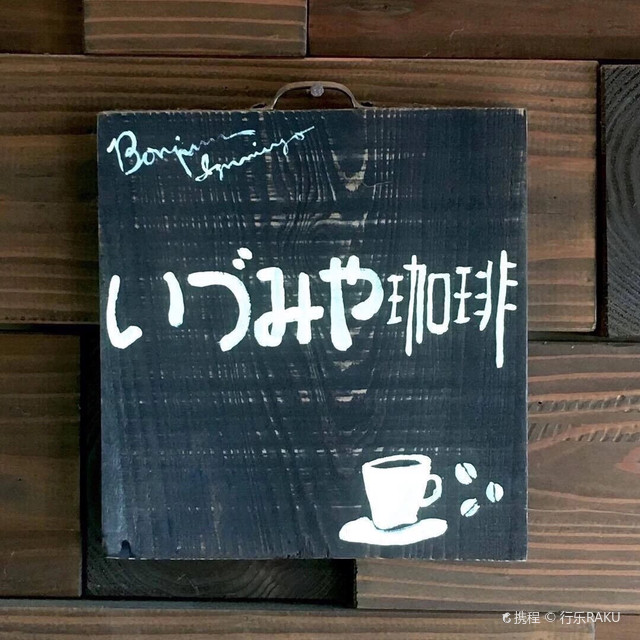 Bonjour
いづみや珈琲
携程 © 行乐RAKU